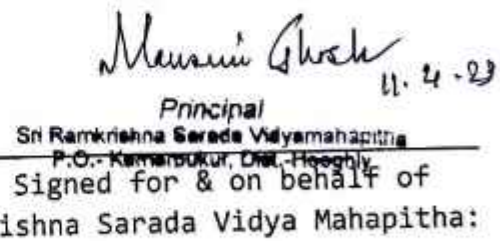 Mausumi Ghosh
11.4.23
Principal
Sri Ramkrishna Sarada Vidyamahapitha
P.O.- Kamarpukur, Dist.-Hooghly
Signed for & on behalf of
ishna Sarada Vidya Mahapitha: